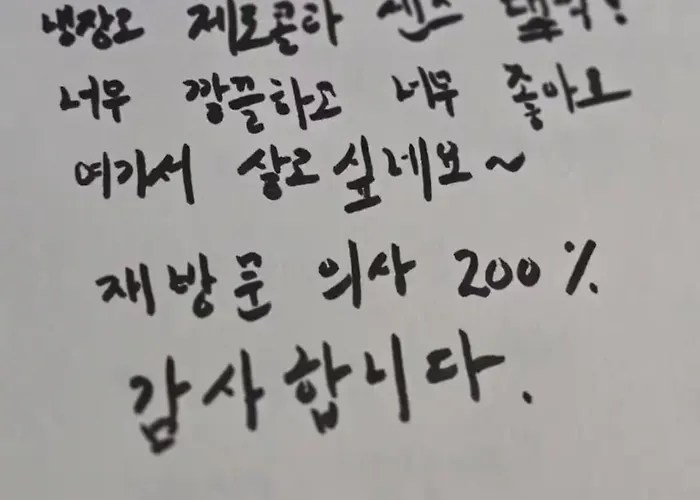 냉장고 제로콜라 센스
너무 깔끔하고 너무 좋아요
여기서 살고 싶네요~
재방문 의사 200%
감사합니다.